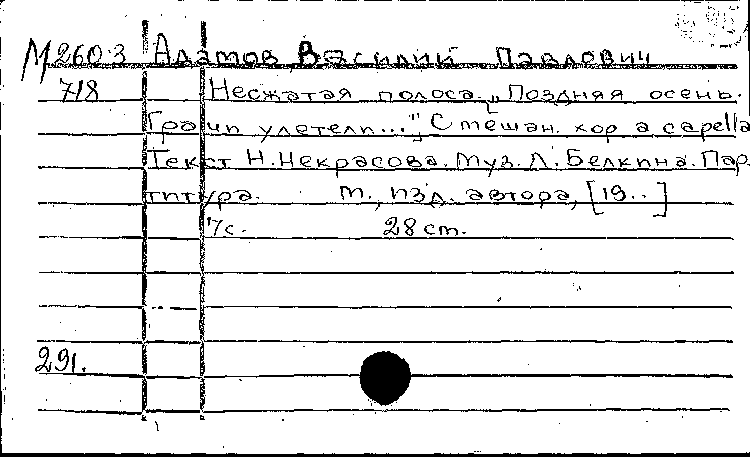 М 260-3 Адамов, Василий Павлович
718 Несжатая полоса. „Поздняя осень.
Грачи улетели...", Смешан. хор a capella
Текст Н. Некрасова. Муз. Л. Белкина. Пар-
титура. М., изд. автора, [19..]
7 с. 28 cm.
291.